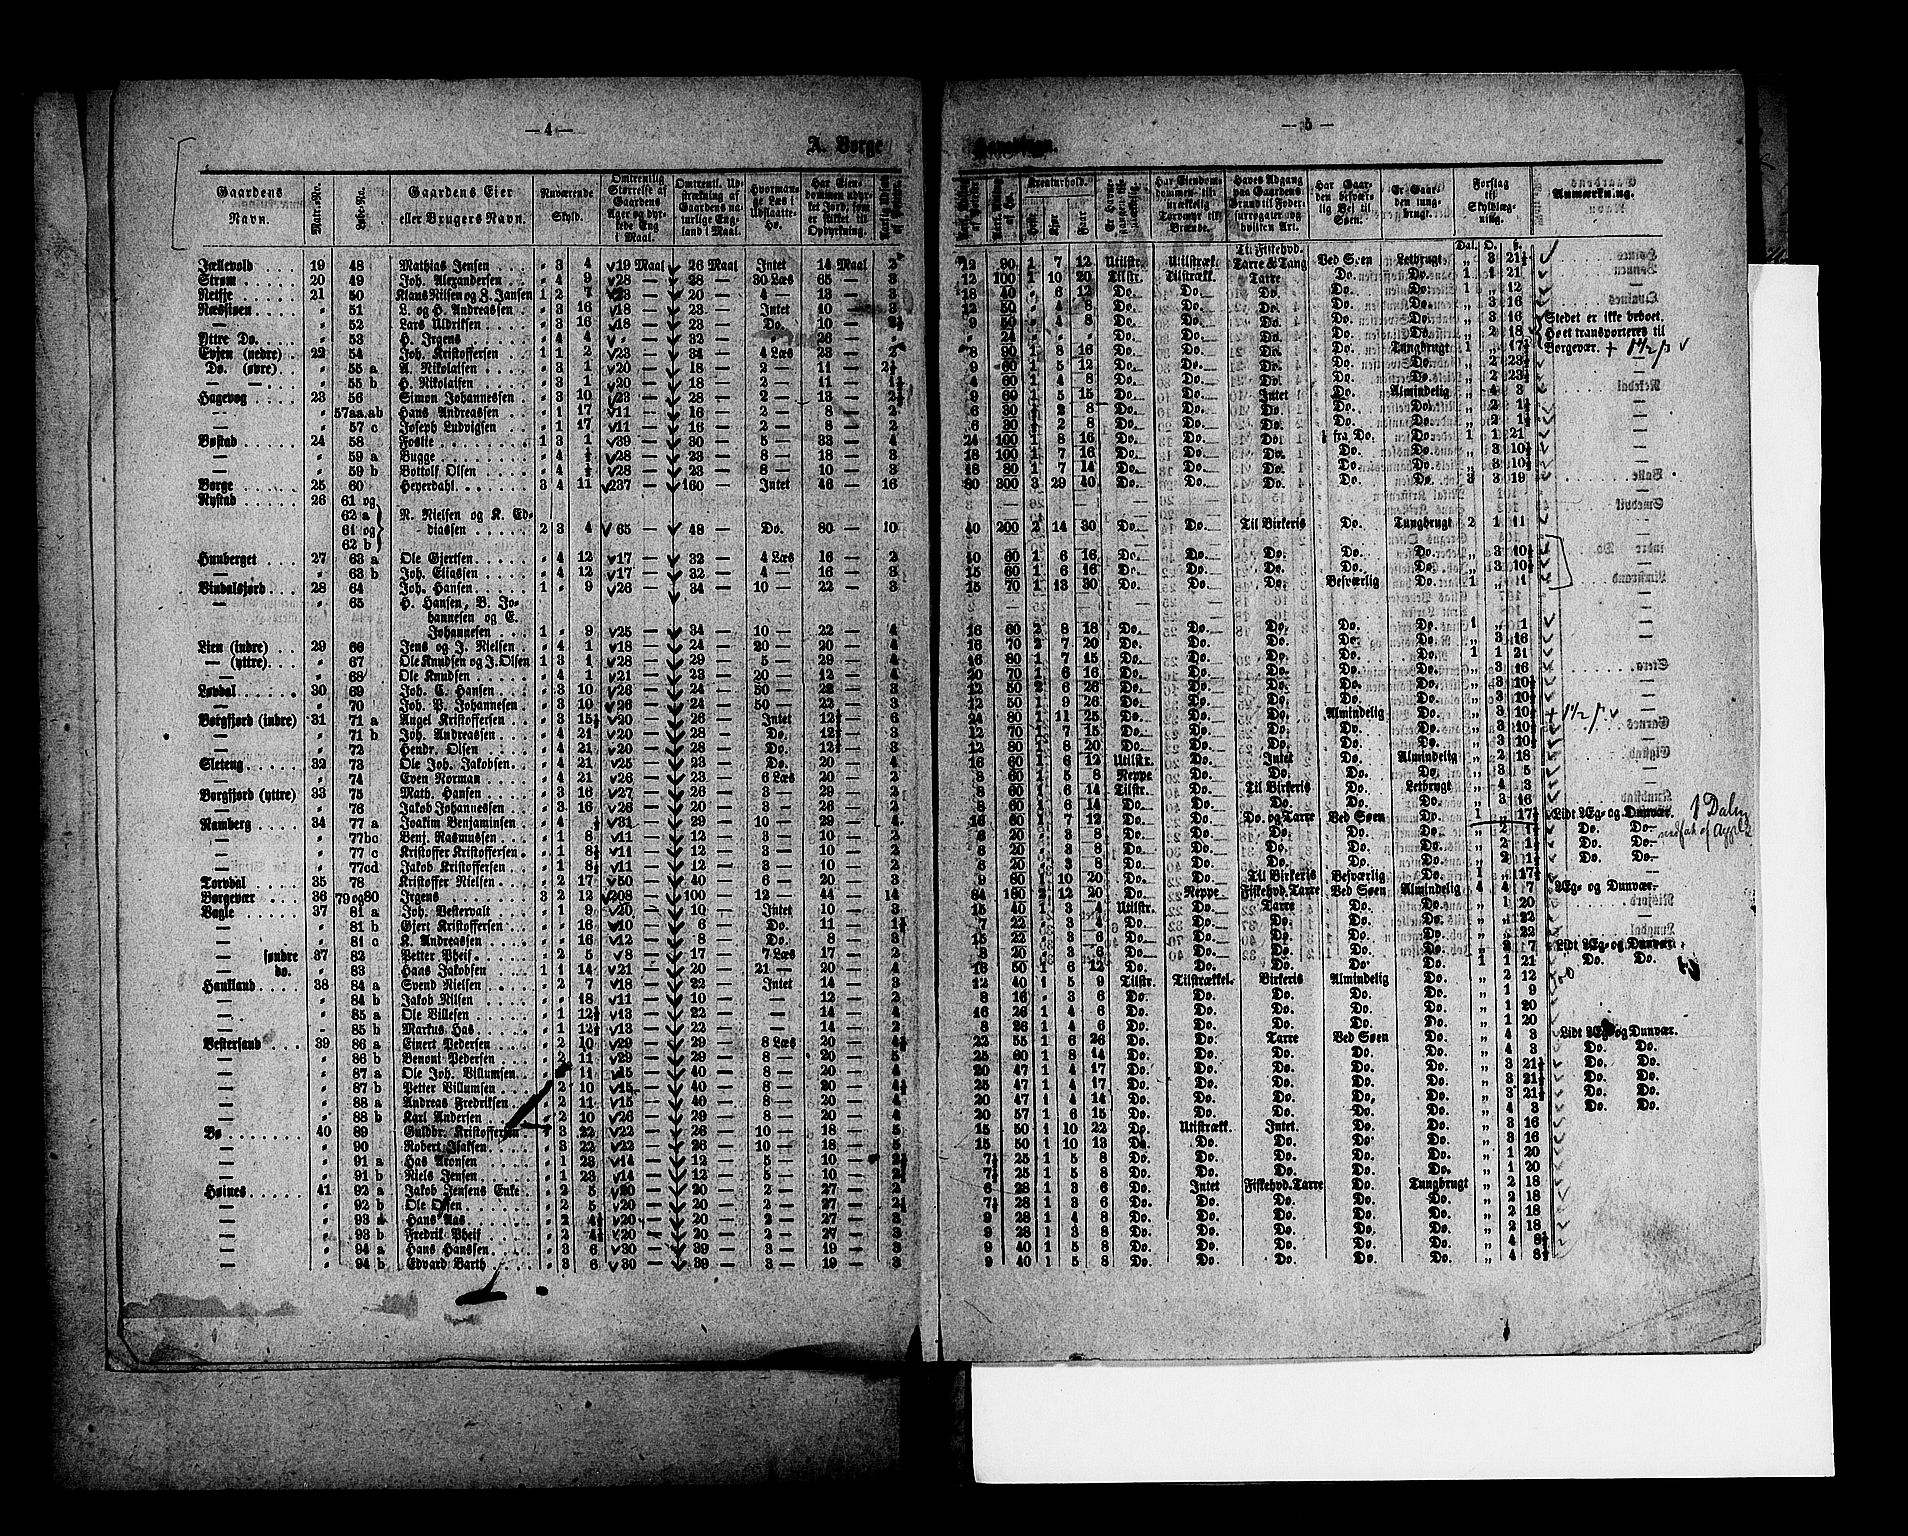 — 4 —
A. Borge
Gaardens Navn.
Matr.-No.
Løbe-No.
Gaardens Eier eller Brugers Navn.
Nuværende Skyld.
Omtrentlig Størrelse af Gaardens Ager og dyrkede Eng i Maal.
Omtrentl. Udstrækning af Gaardens naturlige England i Maal.
Hvormange Læs i Udslaatte-Hø.
Har Eiendommen udyrket Jord, som er skikket til Opdyrkning.
Jællevold 19 48 Mathias Jensen " 3 4 19 Maal 26 Maal Intet 14 Maal 2
Strøm 20 49 Joh. Alexandersen " 4 9 28 — 28 — 30 Læs 65 — 3
Retsje 21 50 Klaus Nilsen og J. Jansen 1 2 7 23 — 20 — 4 — 13 — 3
Næssjøen " 51 L. og H. Andreassen " 3 16 18 — 23 — Intet 10 — 3
— " 52 Lars Uldriksen " 3 16 18 — 23 — Do. 10 —
Yttre Do. " 53 H. Irgens " 4 4 " — 32 — — 26 —
Evjen (nedre) 22 54 Joh. Kristoffersen 1 1 2 23 — 34 — 4 Læs 23 — 2
Do. (øvre) " 55 a A. Nikolaisen " 3 1 20 — 18 — 2 — 11 — 2½
— — " 55 b H. Nikolaisen " 3 1 20 — 18 — 2 — 11 —
Hagevog 23 56 Simon Johannessen " 3 10 23 — 28 — 2 — 13 —
" 57aa.ab Hans Andreassen " 1 17 11 — 16 — 2 — 8 — 2
" 57 c Joseph Ludvigsen " 1 17 11 — 16 — 2 — 8 — 2
Bøstad 24 58 Foslie 1 3 1 39 — 30 — 5 — 33 — 4
— " 59 a Bugge " 4 ½ 28 — 23 — 8 — 18 — 3
— " 59 b Bottolf Olsen " 4 ½ 28 — 23 — 8 — 10 — 3
Borge 25 60 Heyerdahl 3 4 11 237 — 160 — Intet 46 — 16
Nystad 26 61 og
62 a
61 og
62 b
N. Nielsen og K. Ediassen 2 3 4 65 — 48 — Do. 80 — 10
Hunberget 27 63 a Ole Gjertsen " 4 12 17 — 32 — 4 Læs 16 — 2
— " 63 b Joh. Eliassen " 4 12 17 — 32 — 4 — 16 — 3
Vindalsjord 28 64 Joh. Hansen 1 " 9 26 — 34 — 10 — 22 — 3
— " 65 H. Hansen, B. Johannesen og E.
Johannesen 1 " 9 25 — 34 — 10 — 22 — 4
Lien (indre) 29 66 Jens og J. Nielsen " 4 1 18 — 24 — 20 — 20 — 4
— (yttre) " 67 Ole Knudsen og J. Olsen 1 3 1 28 — 29 — 5 — 29 — 4
— " 68 Ole Knudsen " 4 1 21 — 23 — 20 — 12 — 4
Løvdal 30 69 Joh. C. Hansen " 3 10 26 — 24 — 50 — 22 — 3
— " 70 Joh. P. Johannesen " 3 10 26 — 24 — 50 — 22 — 3
Borgfjord (indre) 31 71 a Angel Kristoffersen " 3 15½ 20 — 26 — Intet 12½ — 6
— " 71 b Joh. Andreassen " 4 21 20 — 28 — Do. 12½ — 3
— " 72 Hendr. Olsen " 4 21 20 — 28 — Do. 12½ — 3
Sleteng 32 73 Ole Joh. Jakobsen " 4 21 25 — 24 — Do. 20 — 4
— " 74 Even Norman " 4 21 26 — 23 — 6 Læs 20 — 2
Borgfjord (yttre) 33 75 Math. Hansen " 3 16 27 — 26 — 3 — 29 — 2
— " 76 Jakob Johannessen " 3 16 26 — 20 — 3 — 20 — 2
Ramberg 34 77 a Joakim Benjaminsen " 4 ½ 31 — 29 — 10 — 30 — 4
— " 77bc Benj. Rasmussen " 1 8 11 — 12 — 3 — 10 — 2
— " 77 c Kristoffer Kristoffersen " 1 8½ 11 — 12 — 3 — 10 — 2
— " 77cd Jakob Kristoffersen " 1 8½ 11 — 12 — 3 — 10 — 2
Torvdal 35 78 Kristoffer Nielsen " 2 17 50 — 40 — 6 — 20 — 3
Borgevær 36 79og80 Irgens 3 2 12 208 — 100 — 12 — 44 — 14
Vagle 37 81 a Joh. Vestervalt " 1 9 20 — 10 — Intet 10 — 3
— " 81 b Gjert Kristoffersen " " 16 10 — 6 — Do. 11 — 1½
— " 81 c K. Andreassen " " 16 12 — 8 — Do. 8 — 3
— søndre 37 82 Petter Pheif " 2 5 8 — 17 — 7 Læs 17 — 2
do. " 83 Hans Jakobsen 1 1 14 21 — 20 — 21 — 20 — 4
Haukland 38 84 a Svend Nielsen " 2 7 18 — 22 — Intet 14 — 3
— " 84 b Jakob Nilsen " " 18 11 — 10 — — 12 — 2
— " 85 a Ole Villesen " 1 12½ 13 — 22 — — 14 — 4
— " 85 b Markus Has " 1 12½ 13 — 22 — — 14 — 2
Vestersand 39 86 a Einert Pedersen " 2 10 29 — 29 — 8 Læs 20 — 4½
— " 86 b Benoni Pedersen " 2 11 29 — 29 — 8 — 20 — 5
— " 87 a Ole Joh. Villumsen " 11 15 — 40 — 8 — 20 — 4
— " 87 b Petter Villumsen " 2 10 15 — 40 — 8 — 20 — 4½
— " 88 a Andreas Fredriksen " 2 11 15 — 40 — 8 — 20 — 4
— " 88 b Karl Andersen " 2 10 26 — 29 — 8 — 20 — 4
Bø 40 89 Guldbr. Kristoffersen " 3 22 22 — 26 — 10 — 18 — 5
— " 90 Robert Isaksen " 3 22 22 — 26 — 10 — 18 — 5
— " 91 a Has Aronsen " 1 23 14 — 12 — 5 — 10 —
— " 91 b Niels Jensen " 1 23 14 — 12 — 5 — 10 —
Høines 41 92 a Jakob Jensens Enke " 2 5 20 — 20 — 2 — 27 — 2
— " 92 b Ole Olsen " 2 5 20 — 20 — 2 — 27 — 2½
— " 93 a Hans Aas " 2 4½ 20 — 20 — 2 — 27 — 3
— " 93 b Fredrik Pheif " 2 4½ 20 — 20 — 2 — 27 — 3
— " 94 a Hans Hanssen " 3 6 30 — 39 — 3 — 19 — 3
— " 94 b Edvard Barth " 3 6 30 — 39 — 3 — 19 — 3
— 5 —
Kreaturhold.
Heste
Kjør
Faar
Har Eiendommen tilstrækkelig Torvmyr til Brænde.
Haves Adgang paa Gaardens Grund til Foder
Har Gaarden besværlig Vei til Søen.
Er Gaarden tungbrugt.
Forslag til Skyldlægning.
Anmærkning.
Til Fiskehvd. Dal. O. ß.
12 90 1 7 12 Utilstr. Utilstræk. Tarre & Tang Ved Søen Letbrugt " 3 21½
12 100 1 10 20 Tilstr. Tilstrækk. Tarre Do. Do. 1 1 21
18 40 " 6 12 Do. Do. Do. Do. Do. 1 " 12
12 50 " 4 8 Do. Do. Do. Do. Do. " 3 16
9 50 " 4 8 Do. Do. Do. Do. Do. " 3 16 Stedet er ikke beboet.
" 24 " " " Do. Do. Do. Do. Do. " 2 18 Høet transporteres til
8 90 1 8 16 Do. Do. Do. Do. Tungbrugt 1 " 17½ Borgevær. + 1½ ß
9 60 1 5 12 Do. Do. Do. Do. Do. " 2 23½
4 60 1 4 8 Do. Do. Do. Do. Do. " 2 23½
9 60 1 5 15 Do. Do. Intet Do. Almindelig " 4 3
6 30 ½ 2 8 Do. Do. Do. Do. Do. " 2 1½
6 30 ½ 2 8 Do. Do. Do. Do. Do. " 2 1½
24 100 1 8 16 Do. Do. Do. ½ fra Do. Do. 1 1 21
18 100 1 7 16 Do. Do. Do. Do. Do. " 3 10½
16 80 1 7 14 Do. Do. Do. Do. Do. " 3 10½
80 300 3 29 40 Do. Do. Do. Do. Do. 3 3 19
40 200 2 14 30 Do. Do. Til Birkeris Do. Tungbrugt 2 1 11
10 60 1 6 16 Do. Do. Do. Do. Do. " 3 10½
15 60 1 6 16 Do. Do. Do. Do. Do. " 3 10½
15 70 1 13 30 Do. Do. Do. Besværlig Do. 1 " 1
16 60 2 8 18 Do. Do. Do. Do. Do. 1 " 1
16 70 2 7 20 Do. Do. Do. Do. Do. " 3 16
16 80 1 7 15 Do. Do. Do. Do. Do. 1 1 21
20 70 1 6 16 Do. Do. Do. Do. Do. " 3 16
12 50 2 6 26 Do. Do. Do. Do. Do. " 3 10½
12 50 1 9 26 Do. Do. Do. Do. Do. " 3 10½
24 80 1 11 25 Do. Do. Do. Almindelig Do. " 3 10½ + 1½ ß.
12 70 1 7 15 Do. Do. Do. Do. Do. " 3 10½
12 80 1 8 20 Do. Do. Do. Do. Do. " 3 10½
16 60 1 6 12 Utilstr. Do. Intet Do. Almindelig " 2 18
8 60 1 5 8 Neppe Do. Do. Do. Do. " 3 5
8 60 1 6 14 Tilstr. Do. Til Birkeris Do. Letbrugt " 4 3
8 60 1 6 14 Do. Do. Do. Do. Do. " 3 16
16 60 1 7 12 Do. Do. Do. og Tarre Ved Søen Do. 1 " 17½ Lidt Æg- og Dunvær. 1 Daler
6 20 " 3 8 Do. Do. Do. Do. Do. " 2 1½ Do. Do.
6 20 " 3 8 Do. Do. Do. Do. Do. " 2 1½ Do. Do.
6 20 " 3 8 Do. Do. Do. Do. Do. " 2 1½ Do. Do.
9 60 1 10 20 Do. Do. Til Birkeris Besværlig Do. 1 " 17½
84 160 2 12 20 Do. Neppe Fiskehvd. Tarre Ved Søen Almindelig 4 4 7 Æg- og Dunvær.
15 40 1 3 4 Utilstr. Do. Tarre Do. Do. " 1 20
7 22 " 3 4 Do. Do. Do. Do. Do. " " 22
15 22 " 3 6 Do. Do. Do. Do. Do. " " 22
8 20 " 3 6 Do. Do. Do. Do. Do. " 2 7 Lidt Æg- og Dunvær.
16 50 1 6 12 Do. Do. Do. Do. Do. 1 1 21 Do. Do.
12 40 1 5 9 Tilstr. Tilstrækkel. Birkeris Almindelig Do. " 2 12
8 16 " 3 6 Do. Do. Do. Do. Do. " 1 9
16 26 1 4 6 Do. Do. Do. Do. Do. " 1 20
8 26 1 4 6 Do. Do. Do. Do. Do. " 1 20
22 55 1 6 26 Do. Do. Tarre Ved Søen Do. " 4 3 Lidt Æg- og Dunvær.
25 60 1 8 14 Do. Do. Do. Do. Do. " 4 3 Do. Do.
20 47 1 4 17 Do. Do. Do. Do. Do. " 3 21½ Do. Do.
25 47 1 4 17 Do. Do. Do. Do. Do. " 3 21½ Do. Do.
20 47 1 4 14 Do. Do. Do. Do. Do. " 3 21½ Do. Do.
20 57 1 6 15 Do. Do. Do. Do. Do. " 4 3 Do. Do.
15 50 1 10 22 Do. Utistrækk. Intet. Do. Do. " 3 16
15 50 1 10 13 Do. Do. Do. Do. Do. " 3 16
7½ 25 1 5 8 Do. Do. Do. Do. Do. " 1 20
7½ 25 1 5 8 Do. Do. Do. Do. Do. " 1 20
6 28 1 3 6 Do. Intet Fiskehvd. Tarre Do. Tungbrugt " 2 18
7½ 28 1 3 6 Do. Do. Do. Do. Do. " 2 18
9 28 1 4 8 Do. Do. Do. Do. Do. " 2 18
9 28 1 3 8 Do. Do. Do. Do. Do. " 2 18
9 40 1 5 8 Do. Do. Do. Do. Do. " 4 8½
9 40 1 5 8 Do. Do. Do. Do. Do. " 4 8½